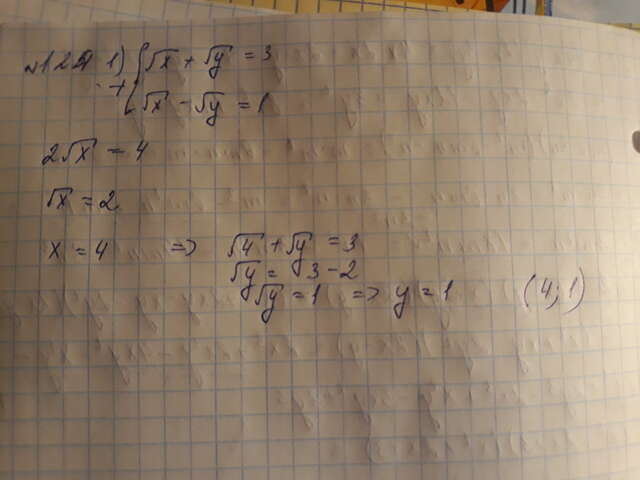 1) √x + √y = 3
+ √x - √y = 1
2√x = 4
√x = 2
x = 4 => √4 + √y = 3
√y = 3 - 2
√y = 1 => y = 1 (4; 1)